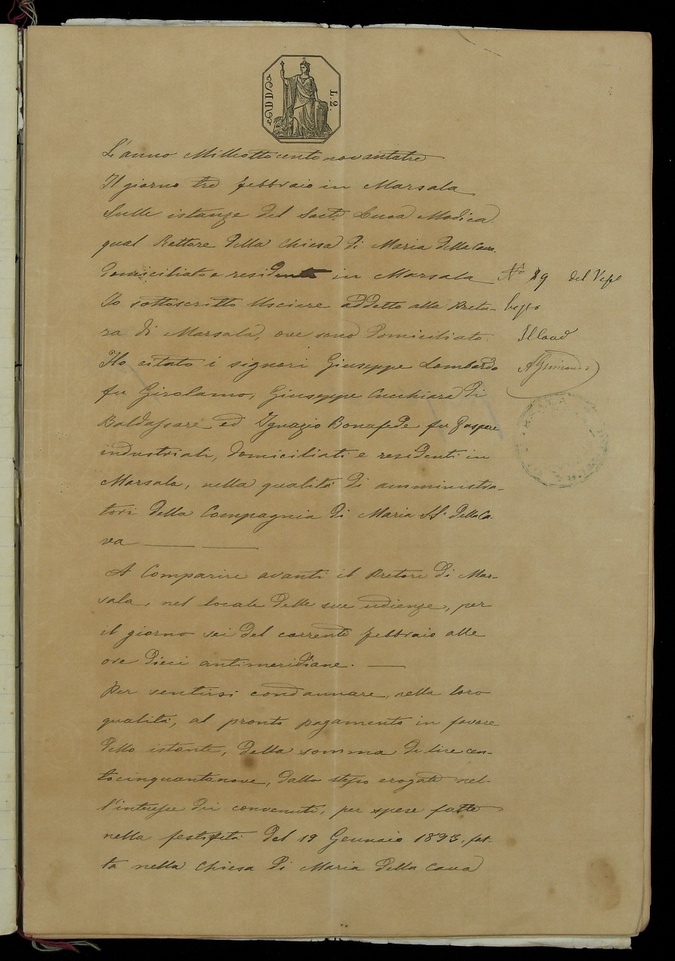 L. 2.
L'anno Milleottocentonovantatre
Il giorno tre febbraio in Marsala
Sulle istanze del Sact. Luca Modica
qual Rettore della Chiesa di Maria della Cava
domiciliato e residente in Marsala
N° 89 del
Io sottoscritto Usciere addetto alla Pretu-
ra di Marsala, ove sono domiciliato.
Ho citato i signori Giuseppe Lombardo
fu Girolamo, Giuseppe Cucchiara di
Baldassare ed Ignazio Bonafede fu Gaspare
industriali, domiciliati e residenti in
Marsala, nella qualità di amministra-
tori della Compagnia di Maria SS. della Ca-
va
A Comparire avanti il Pretore di Mar-
sala, nel locale delle sue udienze, per
il giorno sei del corrente febbraio alle
ore dieci antimeridiane.
Per sentirsi condannare, nella loro
qualità, al pronto pagamento in favore
dello istante, della somma di lire cen-
tocinquantanove, dallo stesso erogate nel-
l'interesse dei convenuti, per spese fatte
nella festività del 19 Gennaio 1893, fat-
ta nella Chiesa di Maria della Cava